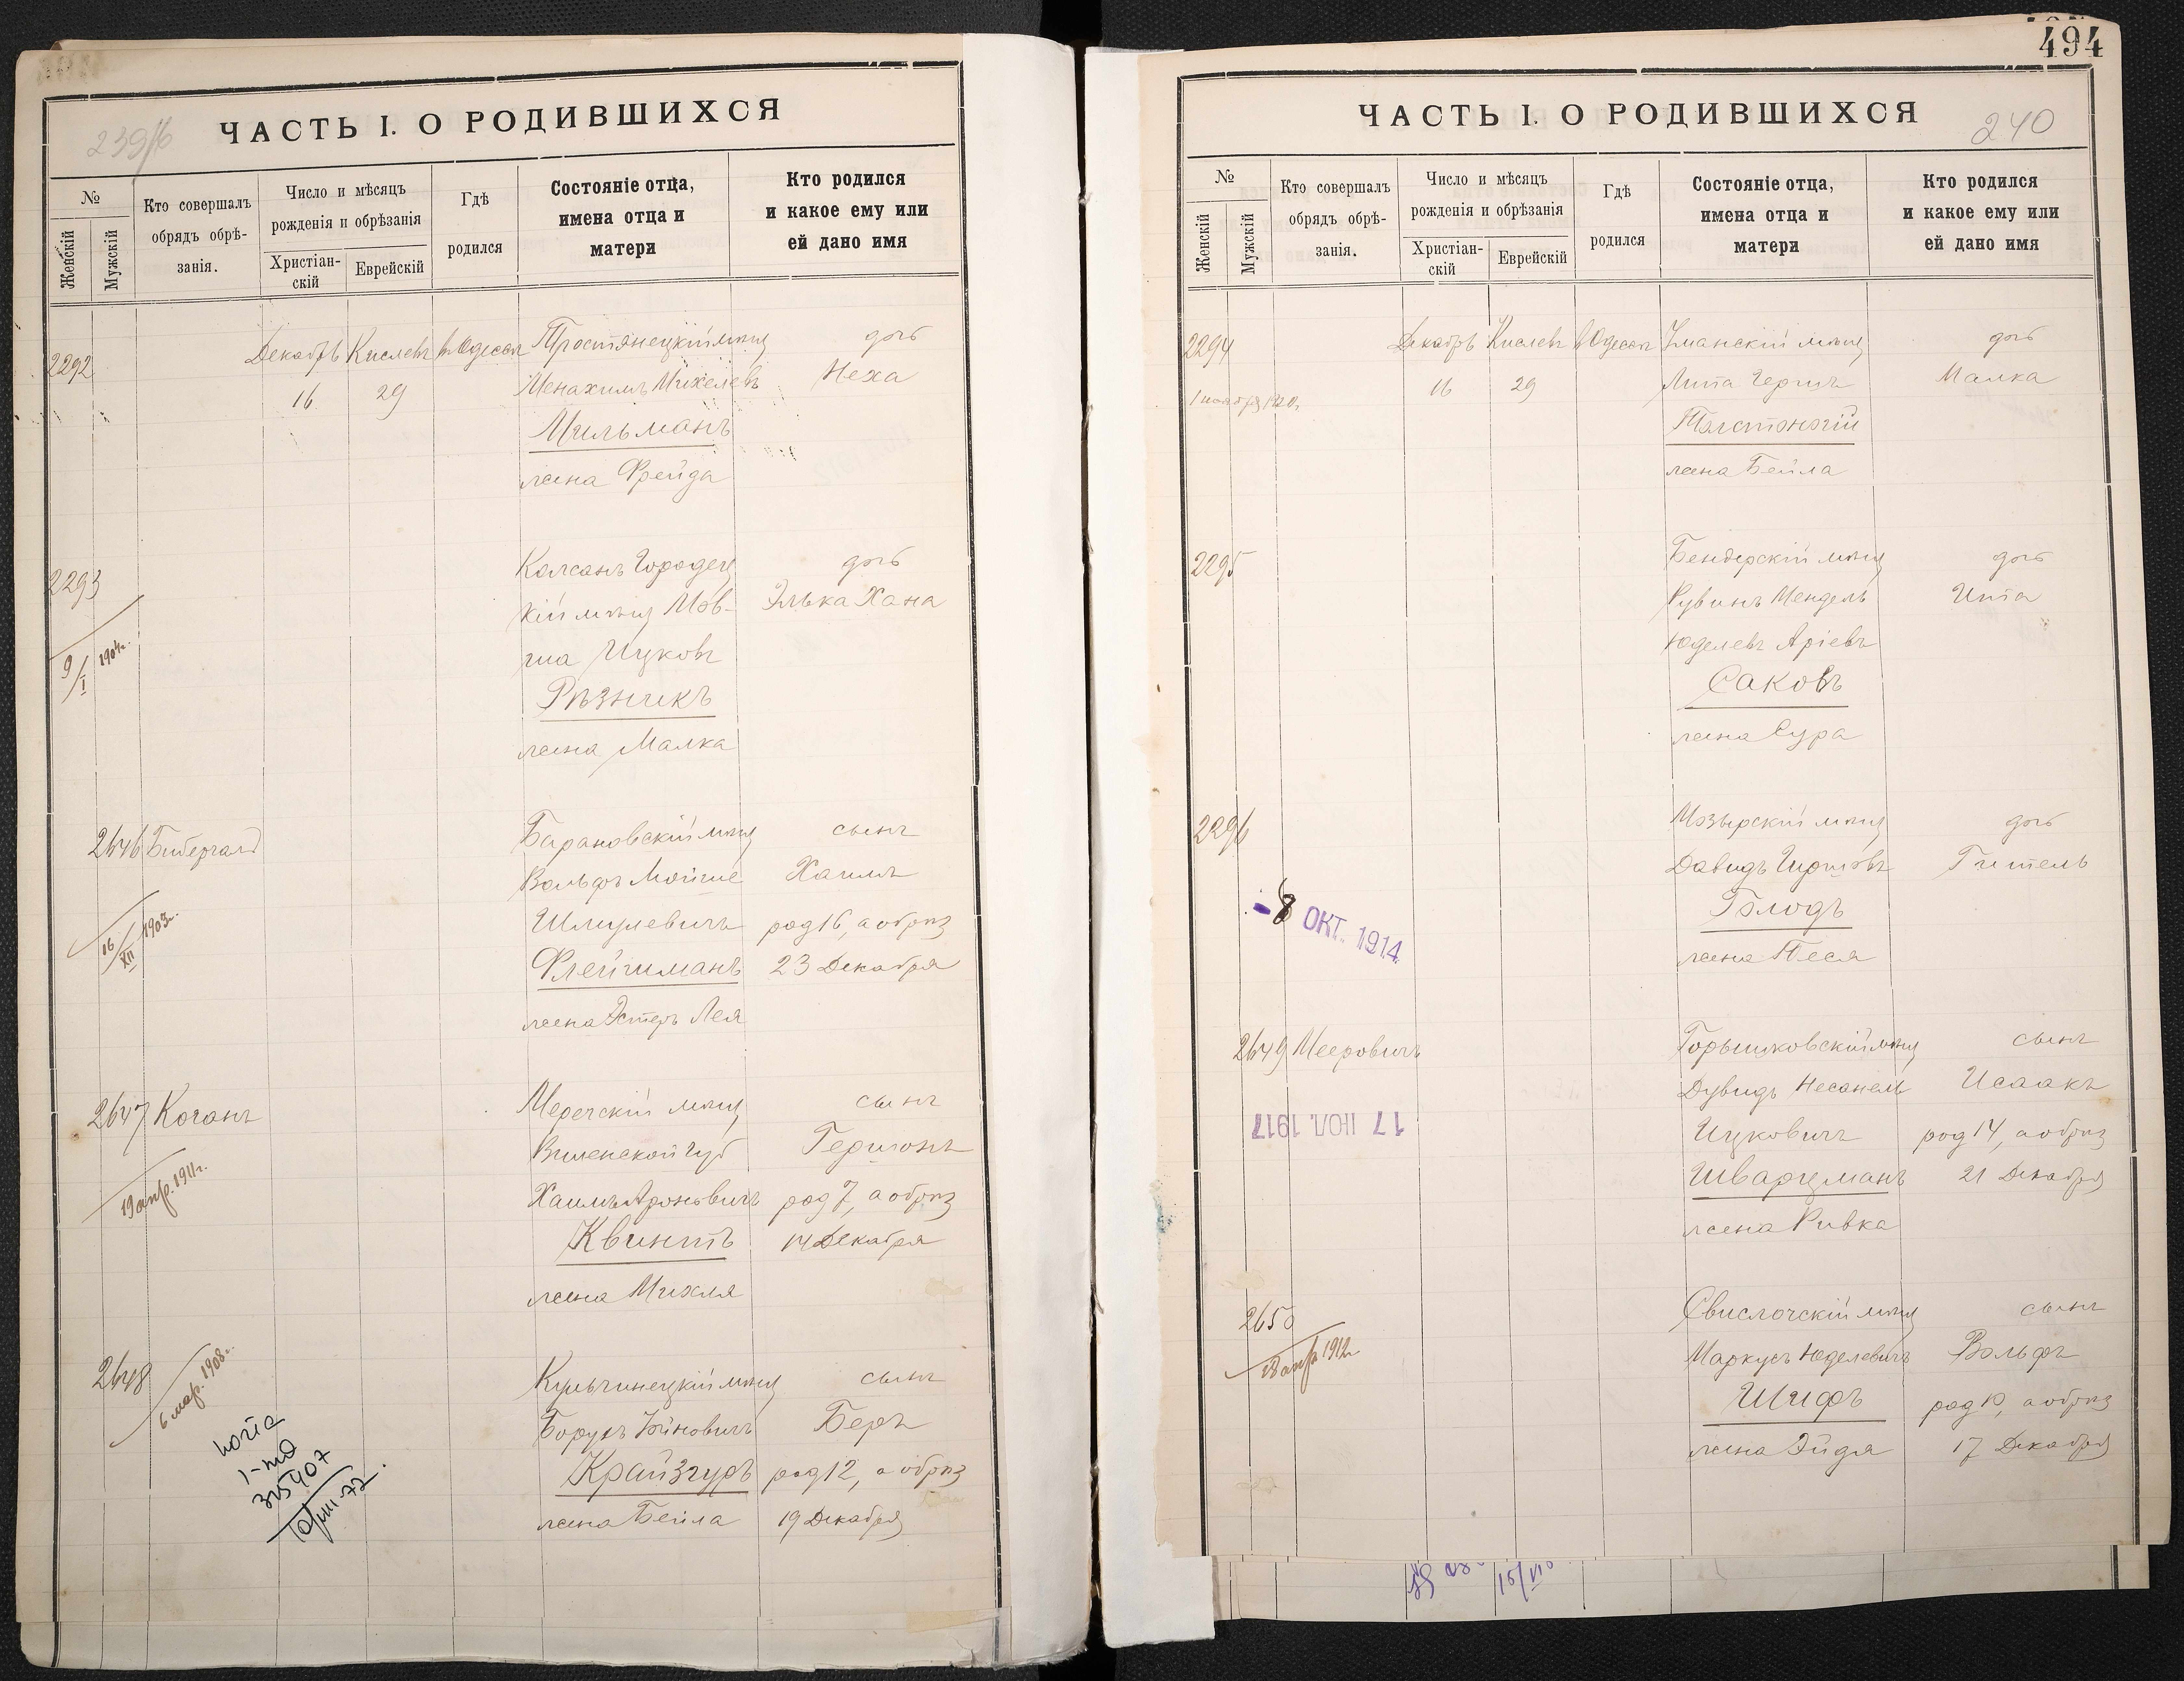 494
ЧАСТЬ I. О РОДИВШИХСЯ
239/б
№
Женскій
Мужскій
Кто совершалъ
обрядъ обрѣ-
занія.
Число и мѣсяцъ
рожденія и обрѣзанія
Христіан-
скій
Еврейскій
Гдѣ
родился
Состояніе отца,
имена отца и
матери
Кто родился
и какое ему или
ей дано имя
2292
Декабрь Кислевъ въ Одессѣ
16 29
Простянецкій мѣщ
Менахимъ Михелевъ
Мильманъ
жена Фрейда
дочь
Неха
2293
9/I 1904г.
Калсанъ Городец
кій мѣщ Мов-
ша Ицковъ
Рѣзникъ
жена Малка
дочь
Элька Хана
2646 Бибергалъ
16/XII 1903г.
Барановскій мѣщ
Вольфъ Мойше
Шмулевичъ
Флейшманъ
жена Эстеръ Лея
сынъ
Хаимъ
род 16, а обрѣз
23 Декабря
2647 Коганъ
19 апр. 1911г.
Меречскій мѣщ
Виленской губ
Хаимъ Ароновичъ
Квинтъ
жена Михля
сынъ
Гершонъ
род 7, а обрѣз
14 Декабря
2648
6 мар. 1908г.
копіа
1-ma
315407
10/VIII-72.
Кульчинецкій мѣщ
Борухъ
Крайзгуръ
жена Бейла
сынъ
Беръ
род 12, а обрѣз
19 Декабря
ЧАСТЬ I. О РОДИВШИХСЯ
240
№
Женскій
Мужскій
Кто совершалъ
обрядъ обрѣ-
занія.
Число и мѣсяцъ
рожденія и обрѣзанія
Христіан-
скій
Еврейскій
Гдѣ
родился
Состояніе отца,
имена отца и
матери
Кто родился
и какое ему или
ей дано имя
2294
Декабрь Кислевъ въ Одессѣ
16 29
Уманскій мѣщ
Липа Гершъ
Толстоногій
жена Бейла
дочь
Малка
2295
Бендерскій мѣщ
Рувинъ Мендель
Юделевъ Аріевъ
Саковъ
жена Сура
дочь
Ита
2296
-8 ОКТ. 1914
Мозырскій мѣщ
Давидъ Гиршовъ
Голодъ
жена Песя
дочь
Гитель
2649 Мееровичъ
17 ІЮЛ. 1917
Горышковскій мѣщ
Дувидъ Несанель
Ицковичъ
Шварцманъ
жена Ривка
сынъ
Исаакъ
род 14, а обрѣз
21 Декабря
2650
18 апр 1912г.
Свислочскій мѣщ
Маркусъ Юделевичъ
Шифъ
жена Эйдя
сынъ
Вольфъ
род 10, а обрѣз
17 Декабря